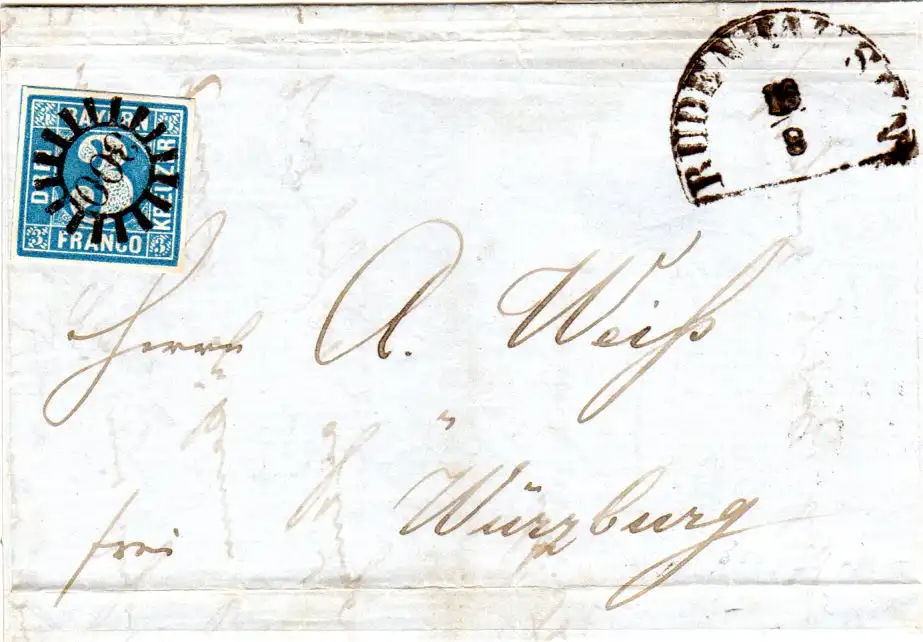 BAYERN
DREI
KREUZER
FRANCO
3
3
3
3
3
18
8
Herrn A. Weiß
Würzburg
frei